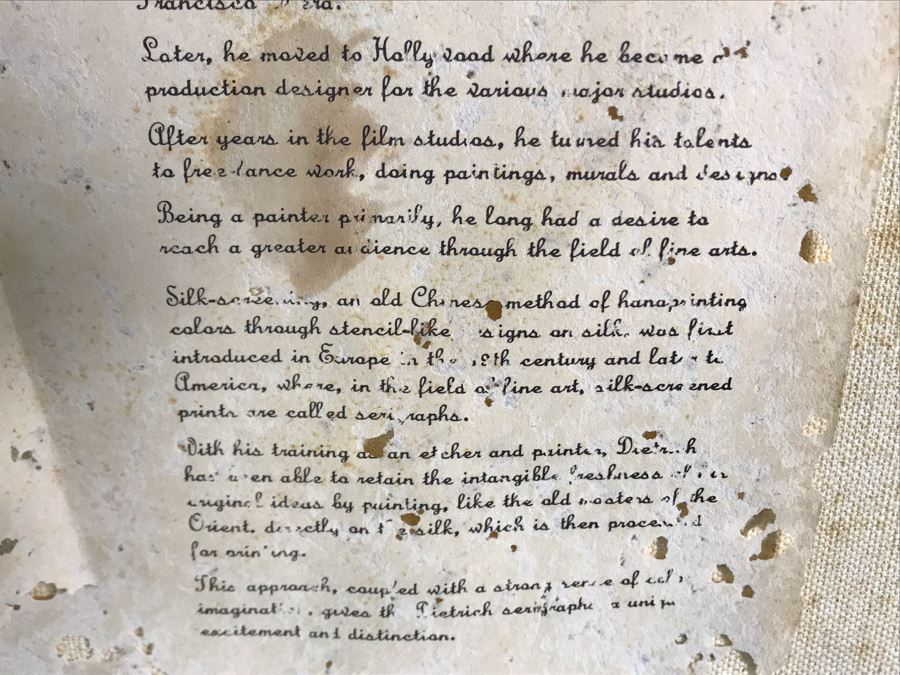 Francisco
Later, he moved to Hollywood where he become
production designer for the various major studios.
After years in the film studios, he turned his talents
to free-lance work, doing paintings, murals and designs
Being a painter primarily, he long had a desire to
reach a greater audience through the field of fine arts.
Silk-screening, an old Chinese method of handprinting
colors through stencil-like on silk, was first
introduced in Europe in the century and
America, where, in the field of fine art, silk-screened
prints are called serigraphs.
With his training as an etcher and painter, Dietrich
has been able to retain the intangible freshness
original ideas by painting, like the old masters of the
Orient, directly on the silk, which is then
for printing.
This approach, coupled with a strong sense of
gives Dietrich serigraphs a
excitement and distinction.